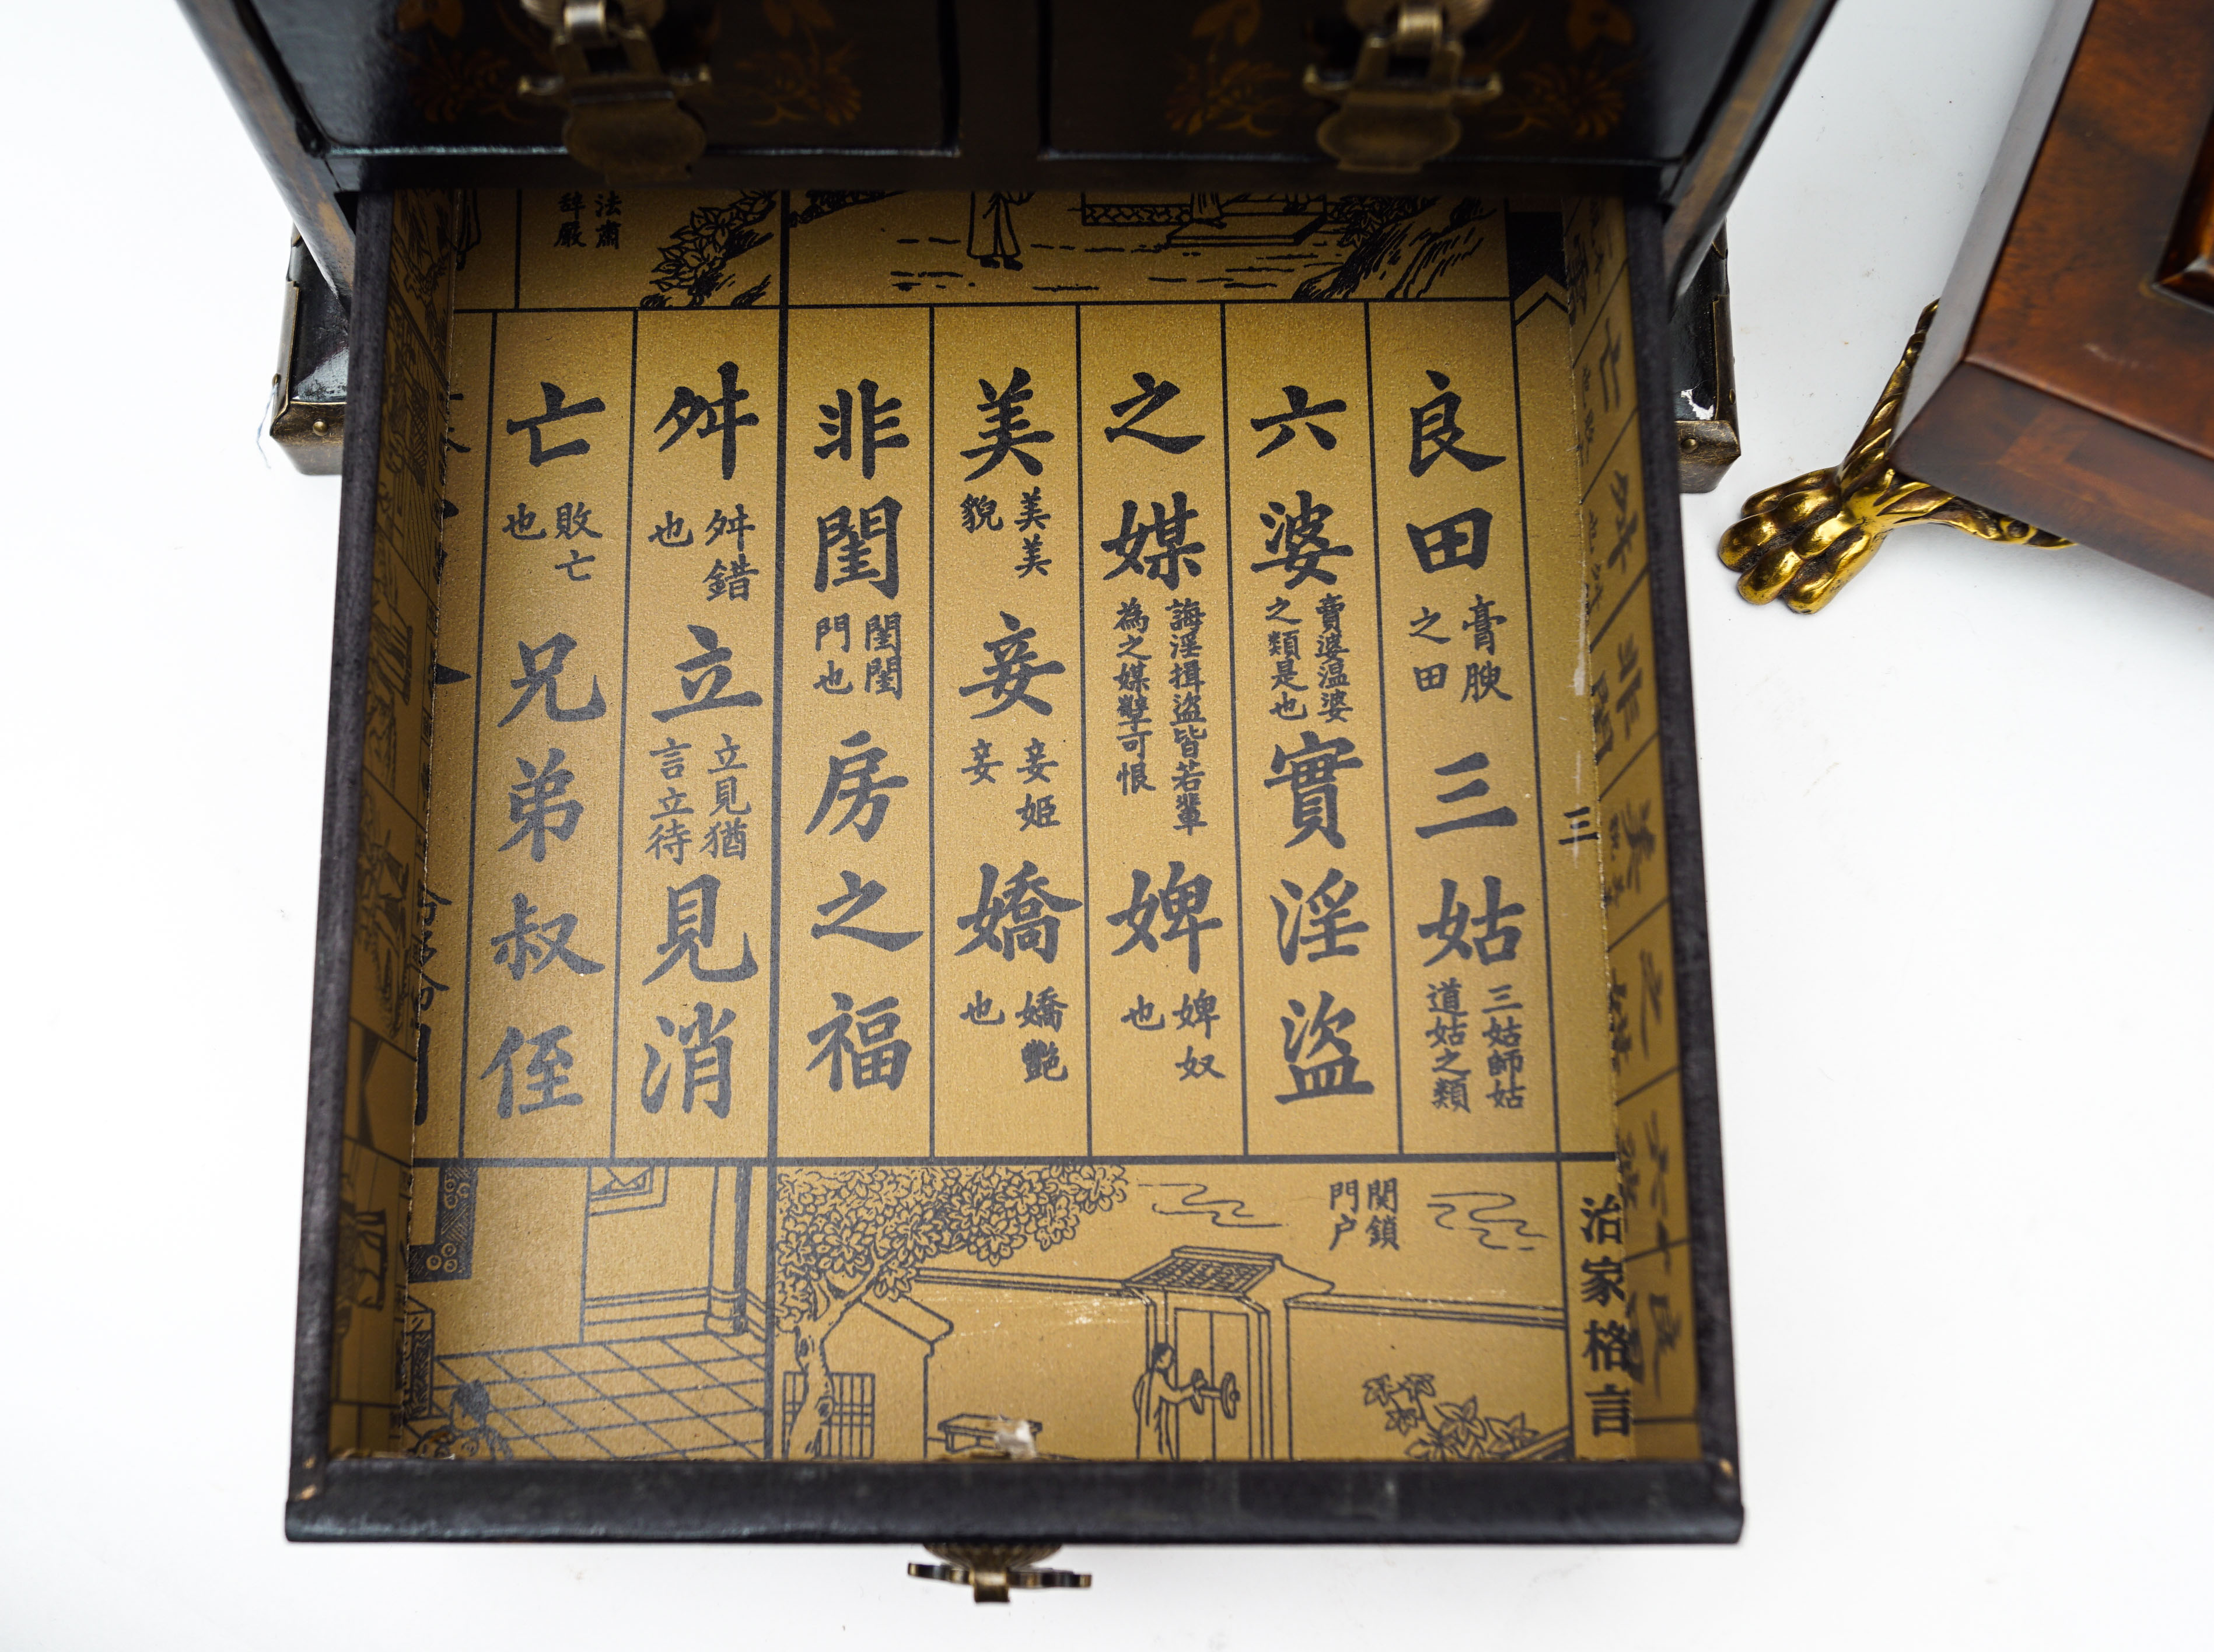 三
治家格言
良田膏腴之田三姑三姑師姑道姑之類
六婆賣婆温婆之類是也實淫盜
之媒誨淫揖盜皆若輩為之媒孽可恨婢婢奴也
美美美貌妾妾姬妾嬌嬌艷也
非閨閨閣門也房之福
舛舛錯也立立見猶言立待見消
亡敗亡也兄弟叔侄
法肅
辞嚴
関鎖
門户